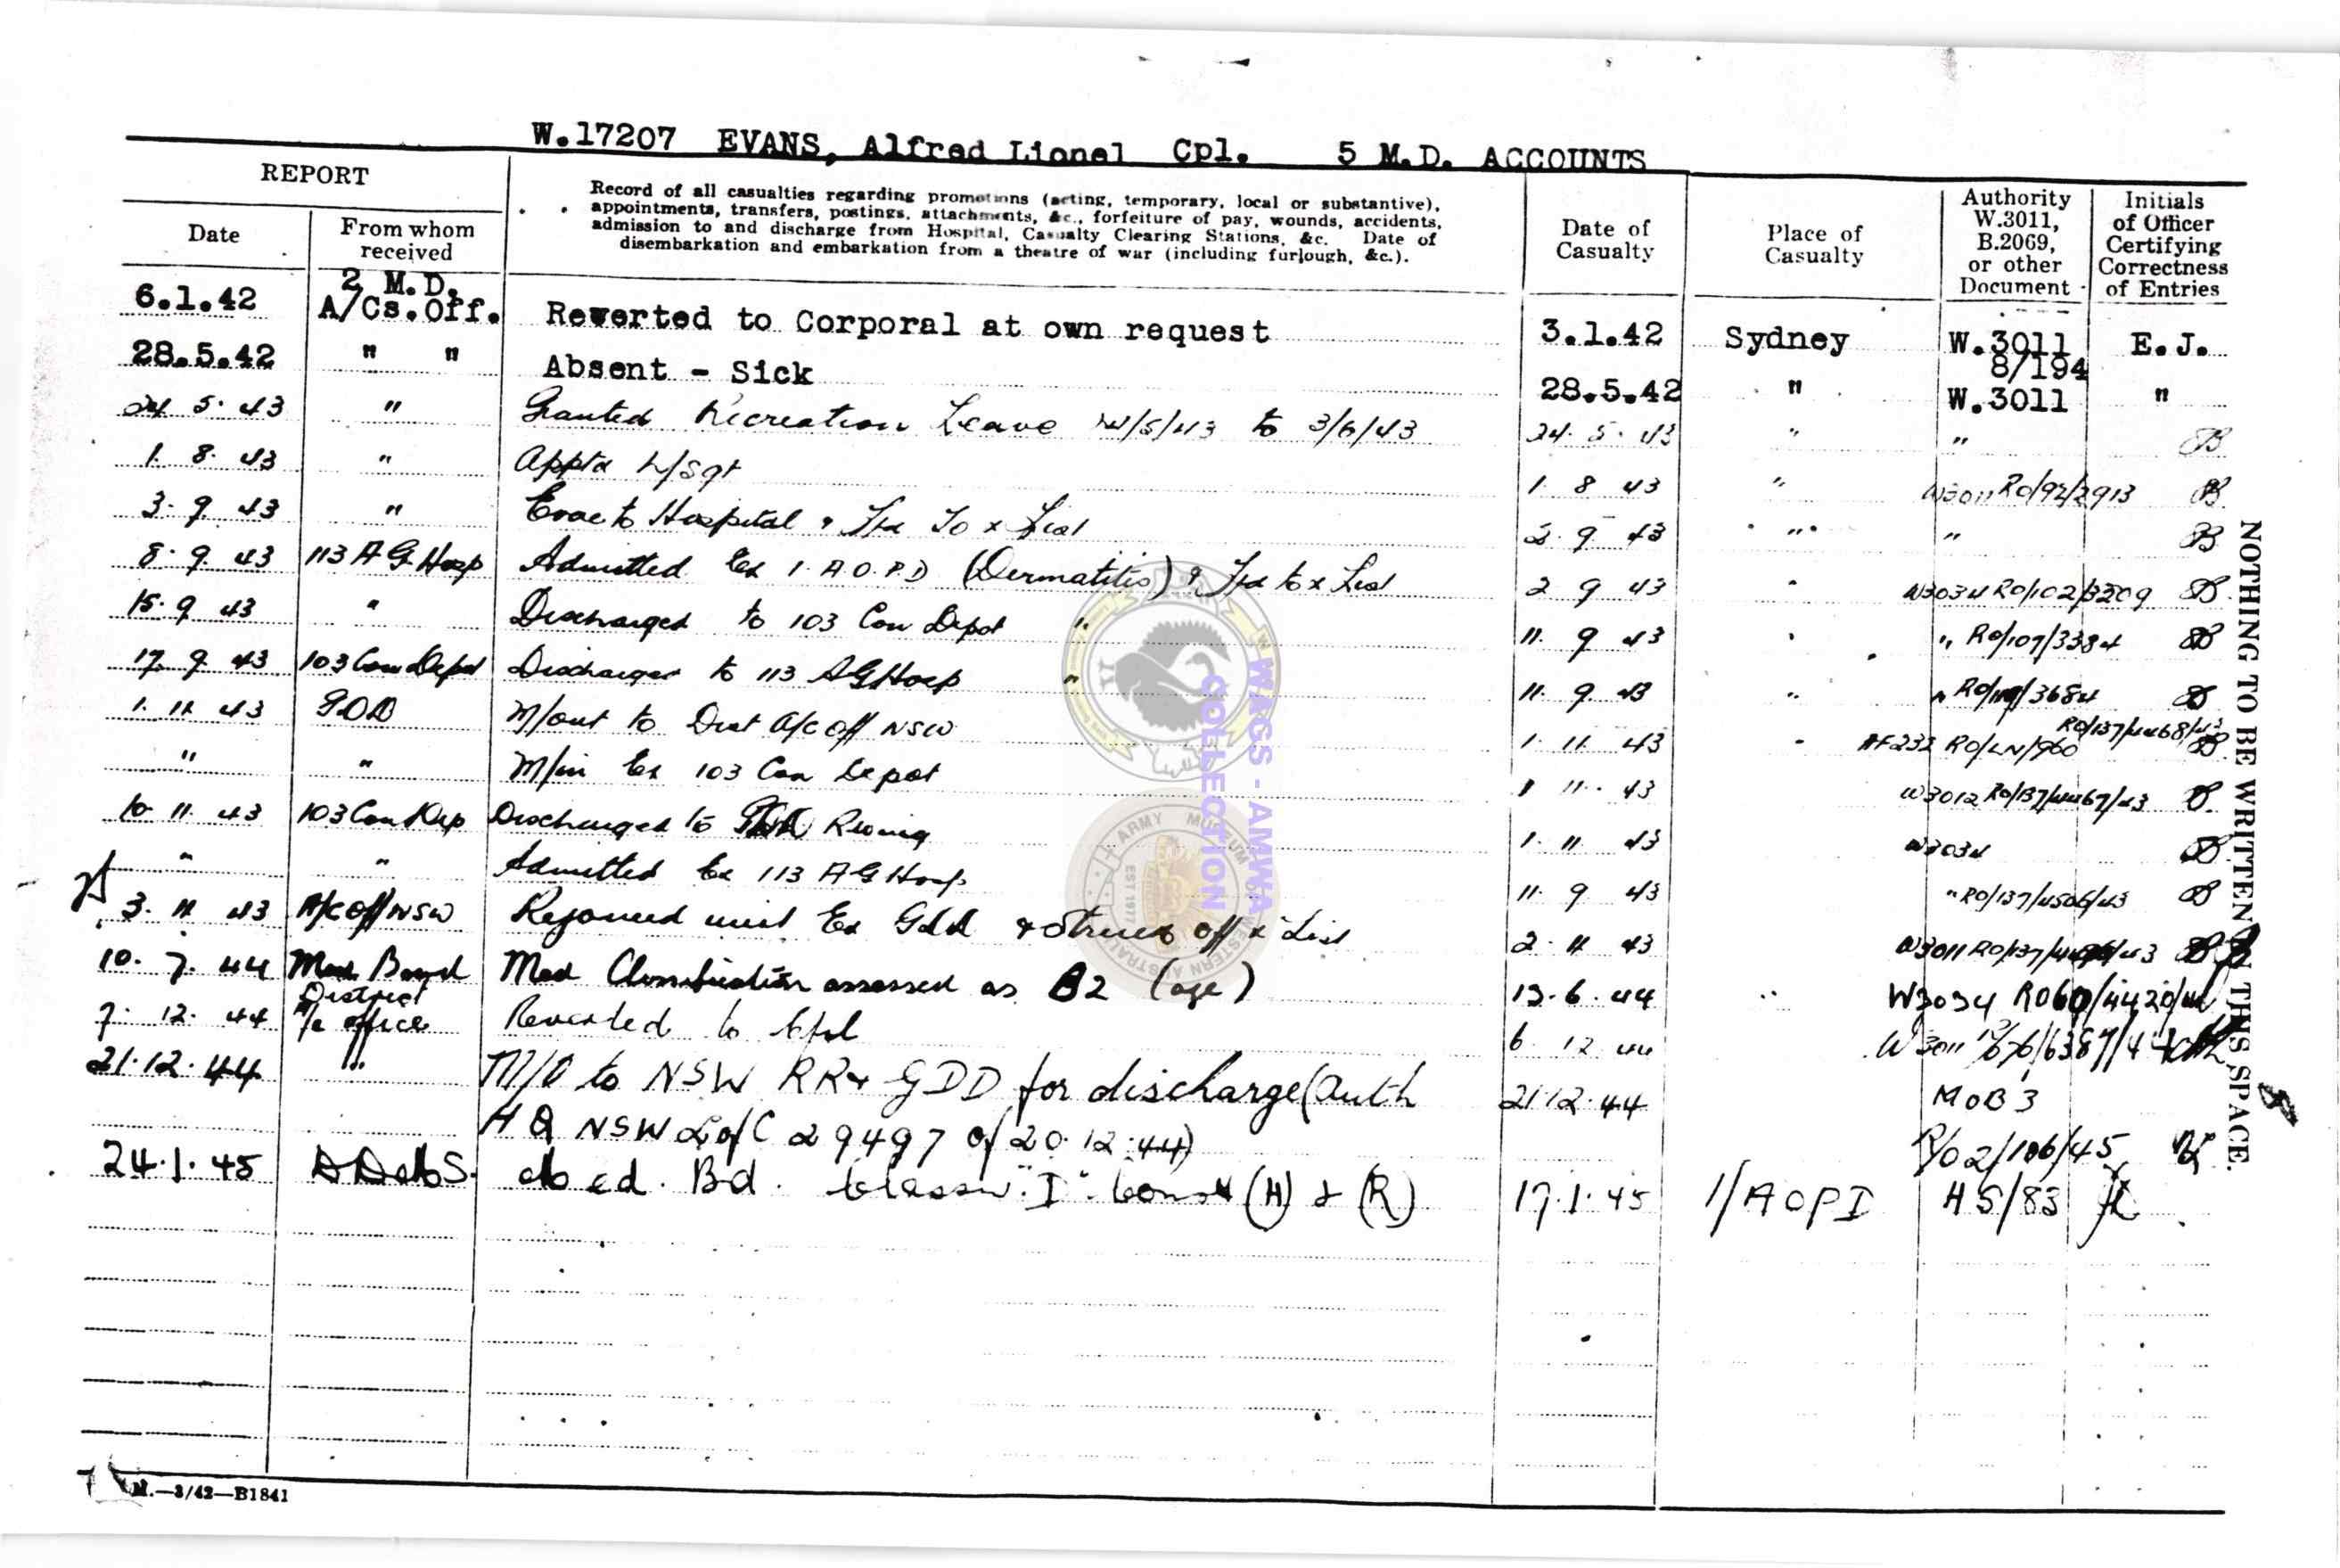 W.17207 EVANS, Alfred Lionel Cpl. 5 M.D. ACCOUNTS
REPORT
Date
From whom received
Record of all casualties regarding promotions (acting, temporary, local or substantive),
appointments, transfers, postings, attachments, &c., forfeiture of pay, wounds, accidents,
admission to and discharge from Hospital, Casualty Clearing Stations, &c. Date of
disembarkation and embarkation from a theatre of war (including furlough, &c.).
Date of Casualty
Place of Casualty
Authority W.3011, B.2069, or other Document
Initials of Officer Certifying Correctness of Entries
6.1.42 2 M.D. A/Cs.Off. Reverted to Corporal at own request 3.1.42 Sydney W.3011 8/194 E.J.
28.5.42 " " Absent - Sick 28.5.42 " W.3011 "
24 5. 43 " Granted Recreation Leave 24/5/43 to 3/6/43 24. 5. 43 " "
1. 8. 43 " Apptd L/Sgt 1 8 43 " W3011 RO/92/2913
3. 9. 43 " Evac to Hospital & Tfd To x List 2. 9 43 " "
8. 9. 43 113 A G Hosp Admitted Ex 1. A.O.P.D (Dermatitis) & Tfd to x List 2 9 43 " W3034 RO/102/3209
15. 9 43 " Discharged to 103 Con Depot " 11. 9 43 " " RO/107/3384
17. 9 43 103 Con Depot Discharged to 113 AGHosp " 11. 9 43 " " /3684
1. 11 43 GDD M/out to Dist A/C off NSW 1. 11 43 " AF232 RO/LN/960 RO/137/4468/43
" " M/in Ex 103 Con Depot 1 11. 43 W3012 RO/137/4467/43
10. 11. 43 103 Con Dep Discharged to GDD 1. 11 43 W3034
" " Admitted Ex 113 A G Hosp 11. 9 43 " RO/137/4506/43
3. 11 43 A/C Off NSW Rejoined unit Ex GDD & Struck off x List 2. 11 43 W3011
10. 7. 44 Med Board Med Classification assessed as B2 (age) 13. 6. 44 " W3034 RO60/4420/44
7. 12. 44 District A/c office Reverted to Cpl 6 12 44 W3011
21.12.44 " M/O to NSW RR & GDD for discharge (Auth 21.12.44 MOB 3
HQ NSW L of C 29497 of 20.12.44) R/O 2/106/45
24.1.45 DDMS. Med. Bd. Classn. "I". (H) & (R) 17.1.45 1/AOPI HS/83
NOTHING TO BE WRITTEN IN THIS SPACE.
WAGS - AMWA
COLLECTION
ARMY MUSEUM OF WESTERN AUSTRALIA
EST 1977
M.—3/42—B1841